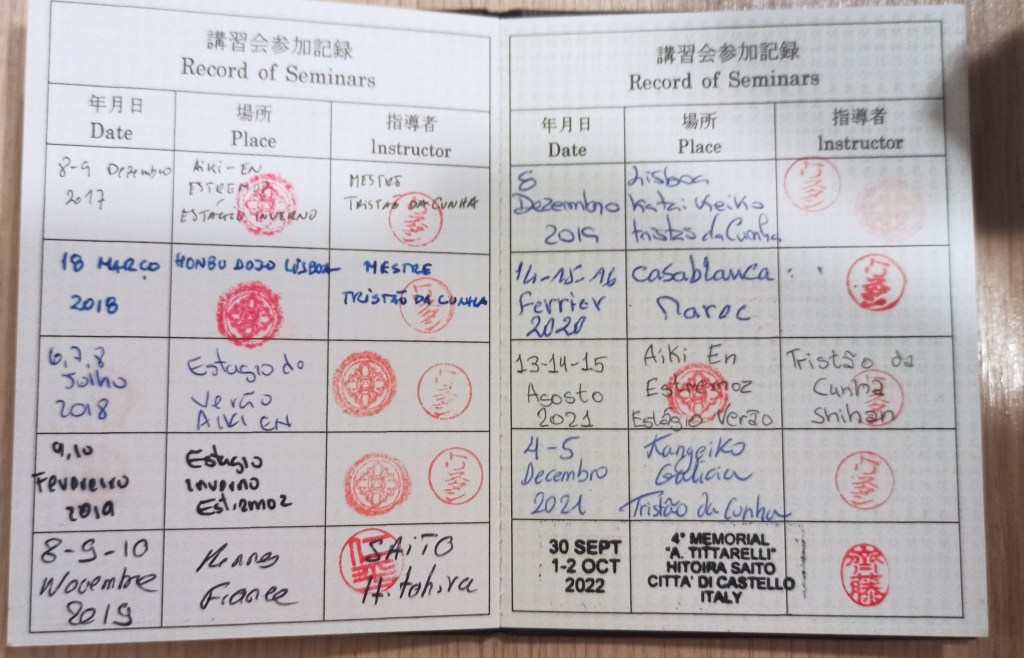 講習会参加記録
Record of Seminars
年月日
Date
場所
Place
指導者
Instructor
8-9 Dezembro
2017
AIKI-EN
ESTREMOZ
ESTÁGIO INVERNO
MESTRE
TRISTÃO DA CUNHA
18 MARÇO
2018
HONBU DOJO LISBOA
MESTRE
TRISTÃO DA CUNHA
6,7,8
Julho
2018
Estagio do
Verão
AIKI EN
9,10
Fevereiro
2019
Estagio
inverno
Estremoz
8-9-10
Novembre
2019
Rennes
France
SAITO
Hitohira
講習会参加記録
Record of Seminars
年月日
Date
場所
Place
指導者
Instructor
8
Dezembro
2019
Lisboa
Katzi Keiko
Tristão da Cunha
14-15-16
Ferrier
2020
Casablanca
Maroc
13-14-15
Agosto
2021
Aiki En
Estremoz
Estágio Verão
Tristão da
Cunha
Shihan
4-5
Decembro
2021
Kangeiko
Galicia
Tristão da Cunha
30 SEPT
1-2 OCT
2022
4° MEMORIAL
"A. TITTARELLI"
HITOIRA SAITO
CITTA' DI CASTELLO
ITALY
齊藤